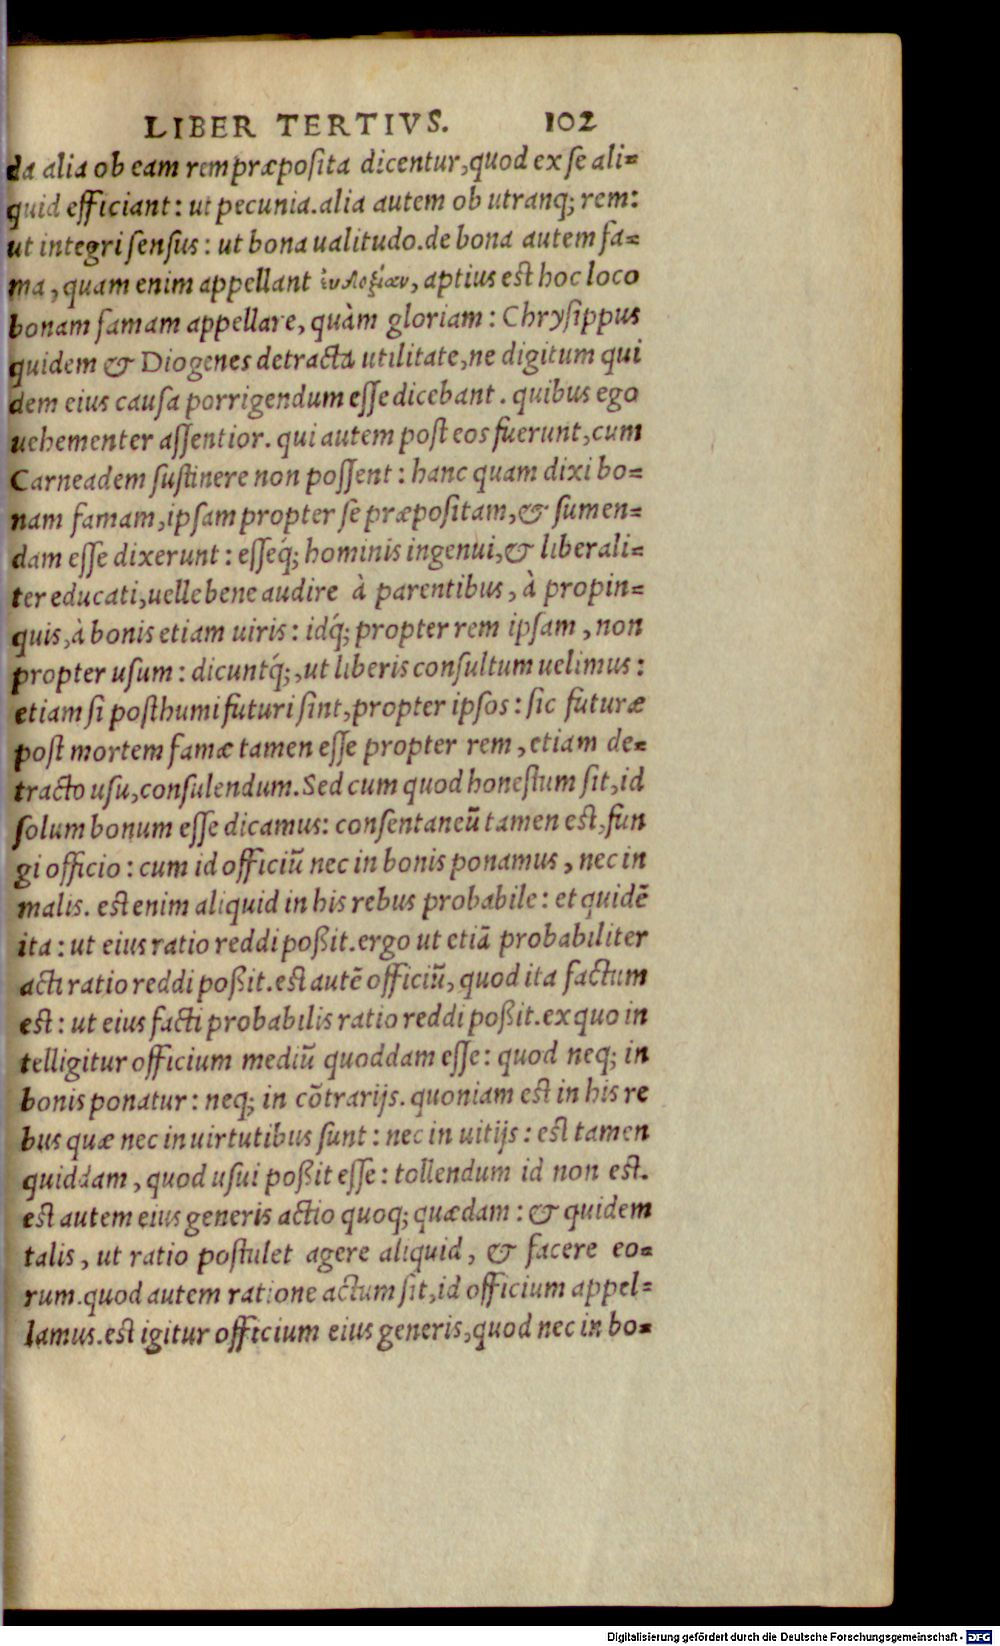 LIBER TERTIVS. 102
da alia ob eam rem præposita dicentur, quod ex se ali=
quid efficiant: ut pecunia. alia autem ob utranq; rem:
ut integri sensus: ut bona ualitudo. de bona autem fa=
ma, quam enim appellant ἐυδοξίαν, aptius est hoc loco
bonam famam appellare, quàm gloriam: Chrysippus
quidem & Diogenes detracta utilitate, ne digitum qui
dem eius causa porrigendum esse dicebant. quibus ego
uehementer assentior. qui autem post eos fuerunt, cum
Carneadem sustinere non possent: hanc quam dixi bo=
nam famam, ipsam propter se præpositam, & sumen=
dam esse dixerunt: esseq́; hominis ingenui, & liberali=
ter educati, uelle bene audire à parentibus, à propin=
quis, à bonis etiam uiris: idq́; propter rem ipsam, non
propter usum: dicuntq́;, ut liberis consultum uelimus:
etiam si posthumi futuri sint, propter ipsos: sic futuræ
post mortem famæ tamen esse propter rem, etiam de=
tracto usu, consulendum. Sed cum quod honestum sit, id
solum bonum esse dicamus: consentaneũ tamen est, fun
gi officio: cum id officiũ nec in bonis ponamus, nec in
malis. est enim aliquid in his rebus probabile: et quidẽ
ita: ut eius ratio reddi poßit. ergo ut etiã probabiliter
acti ratio reddi poßit. est autẽ officiũ, quod ita factum
est: ut eius facti probabilis ratio reddi poßit. ex quo in
telligitur officium mediũ quoddam esse: quod neq; in
bonis ponatur: neq; in cõtrarijs. quoniam est in his re
bus quæ nec in uirtutibus sunt: nec in uitijs: est tamen
quiddam, quod usui poßit esse: tollendum id non est.
est autem eius generis actio quoq; quædam: & quidem
talis, ut ratio postulet agere aliquid, & facere eo=
rum. quod autem ratione actum sit, id officium appel=
lamus. est igitur officium eius generis, quod nec in bo=
Digitalisierung gefördert durch die Deutsche Forschungsgemeinschaft - DFG